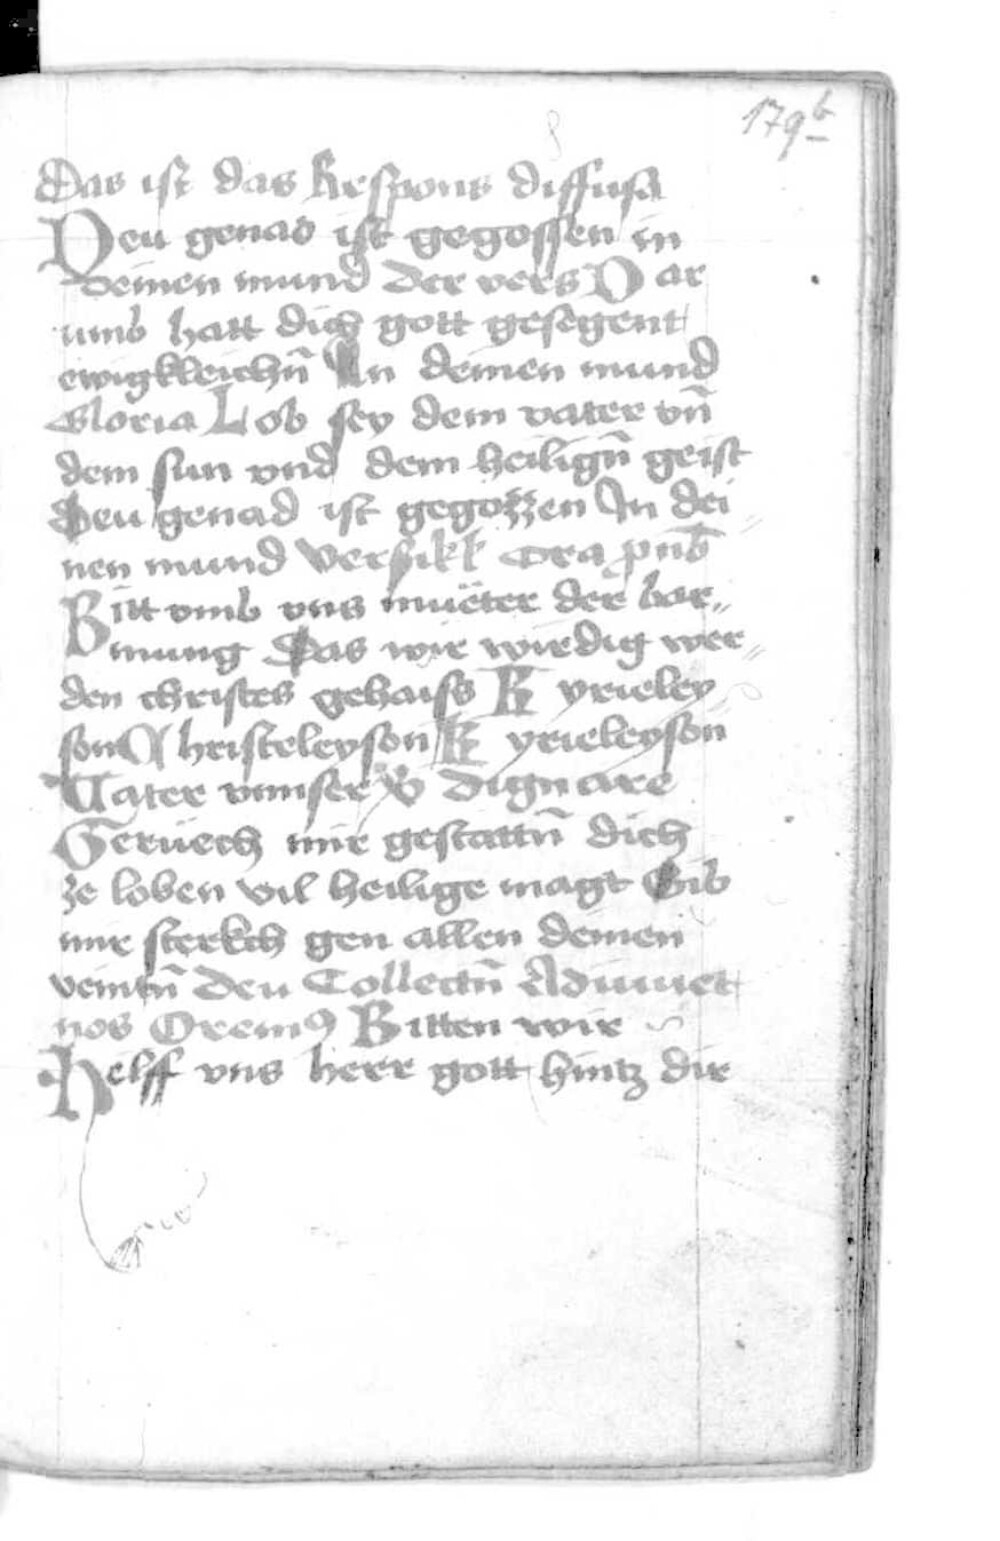 179b
Das ist das Respons diffusa
Deu genad ist gegossen in
deinen mund der vers Dar
umb hatt dich gott gesegent
ewigkleichn̄ In deinen mund
Gloria Lob sey dem vater vn̄
dem sun vnd dem heilign̄ geist
Deu genad ist gegozzen In dei
nen mund Versikk Ora p̱ nb̄
Bitt vmb vns mueter der bar„
mung Das wir wirdig wer„
den christes gehaiss Kyrieley
son Christeleyson Kyrieleyson
Vater vnnser V̓ dignare
Geruech mir gestattn̄ dich
ze loben vil heilige magt Gib
mir sterkch gen allen deinen
veintn̄ Deu Collectn̄ Adiuuet
nos Oremꝰ Bitten wir
Hilff vns herr gott hintz dir